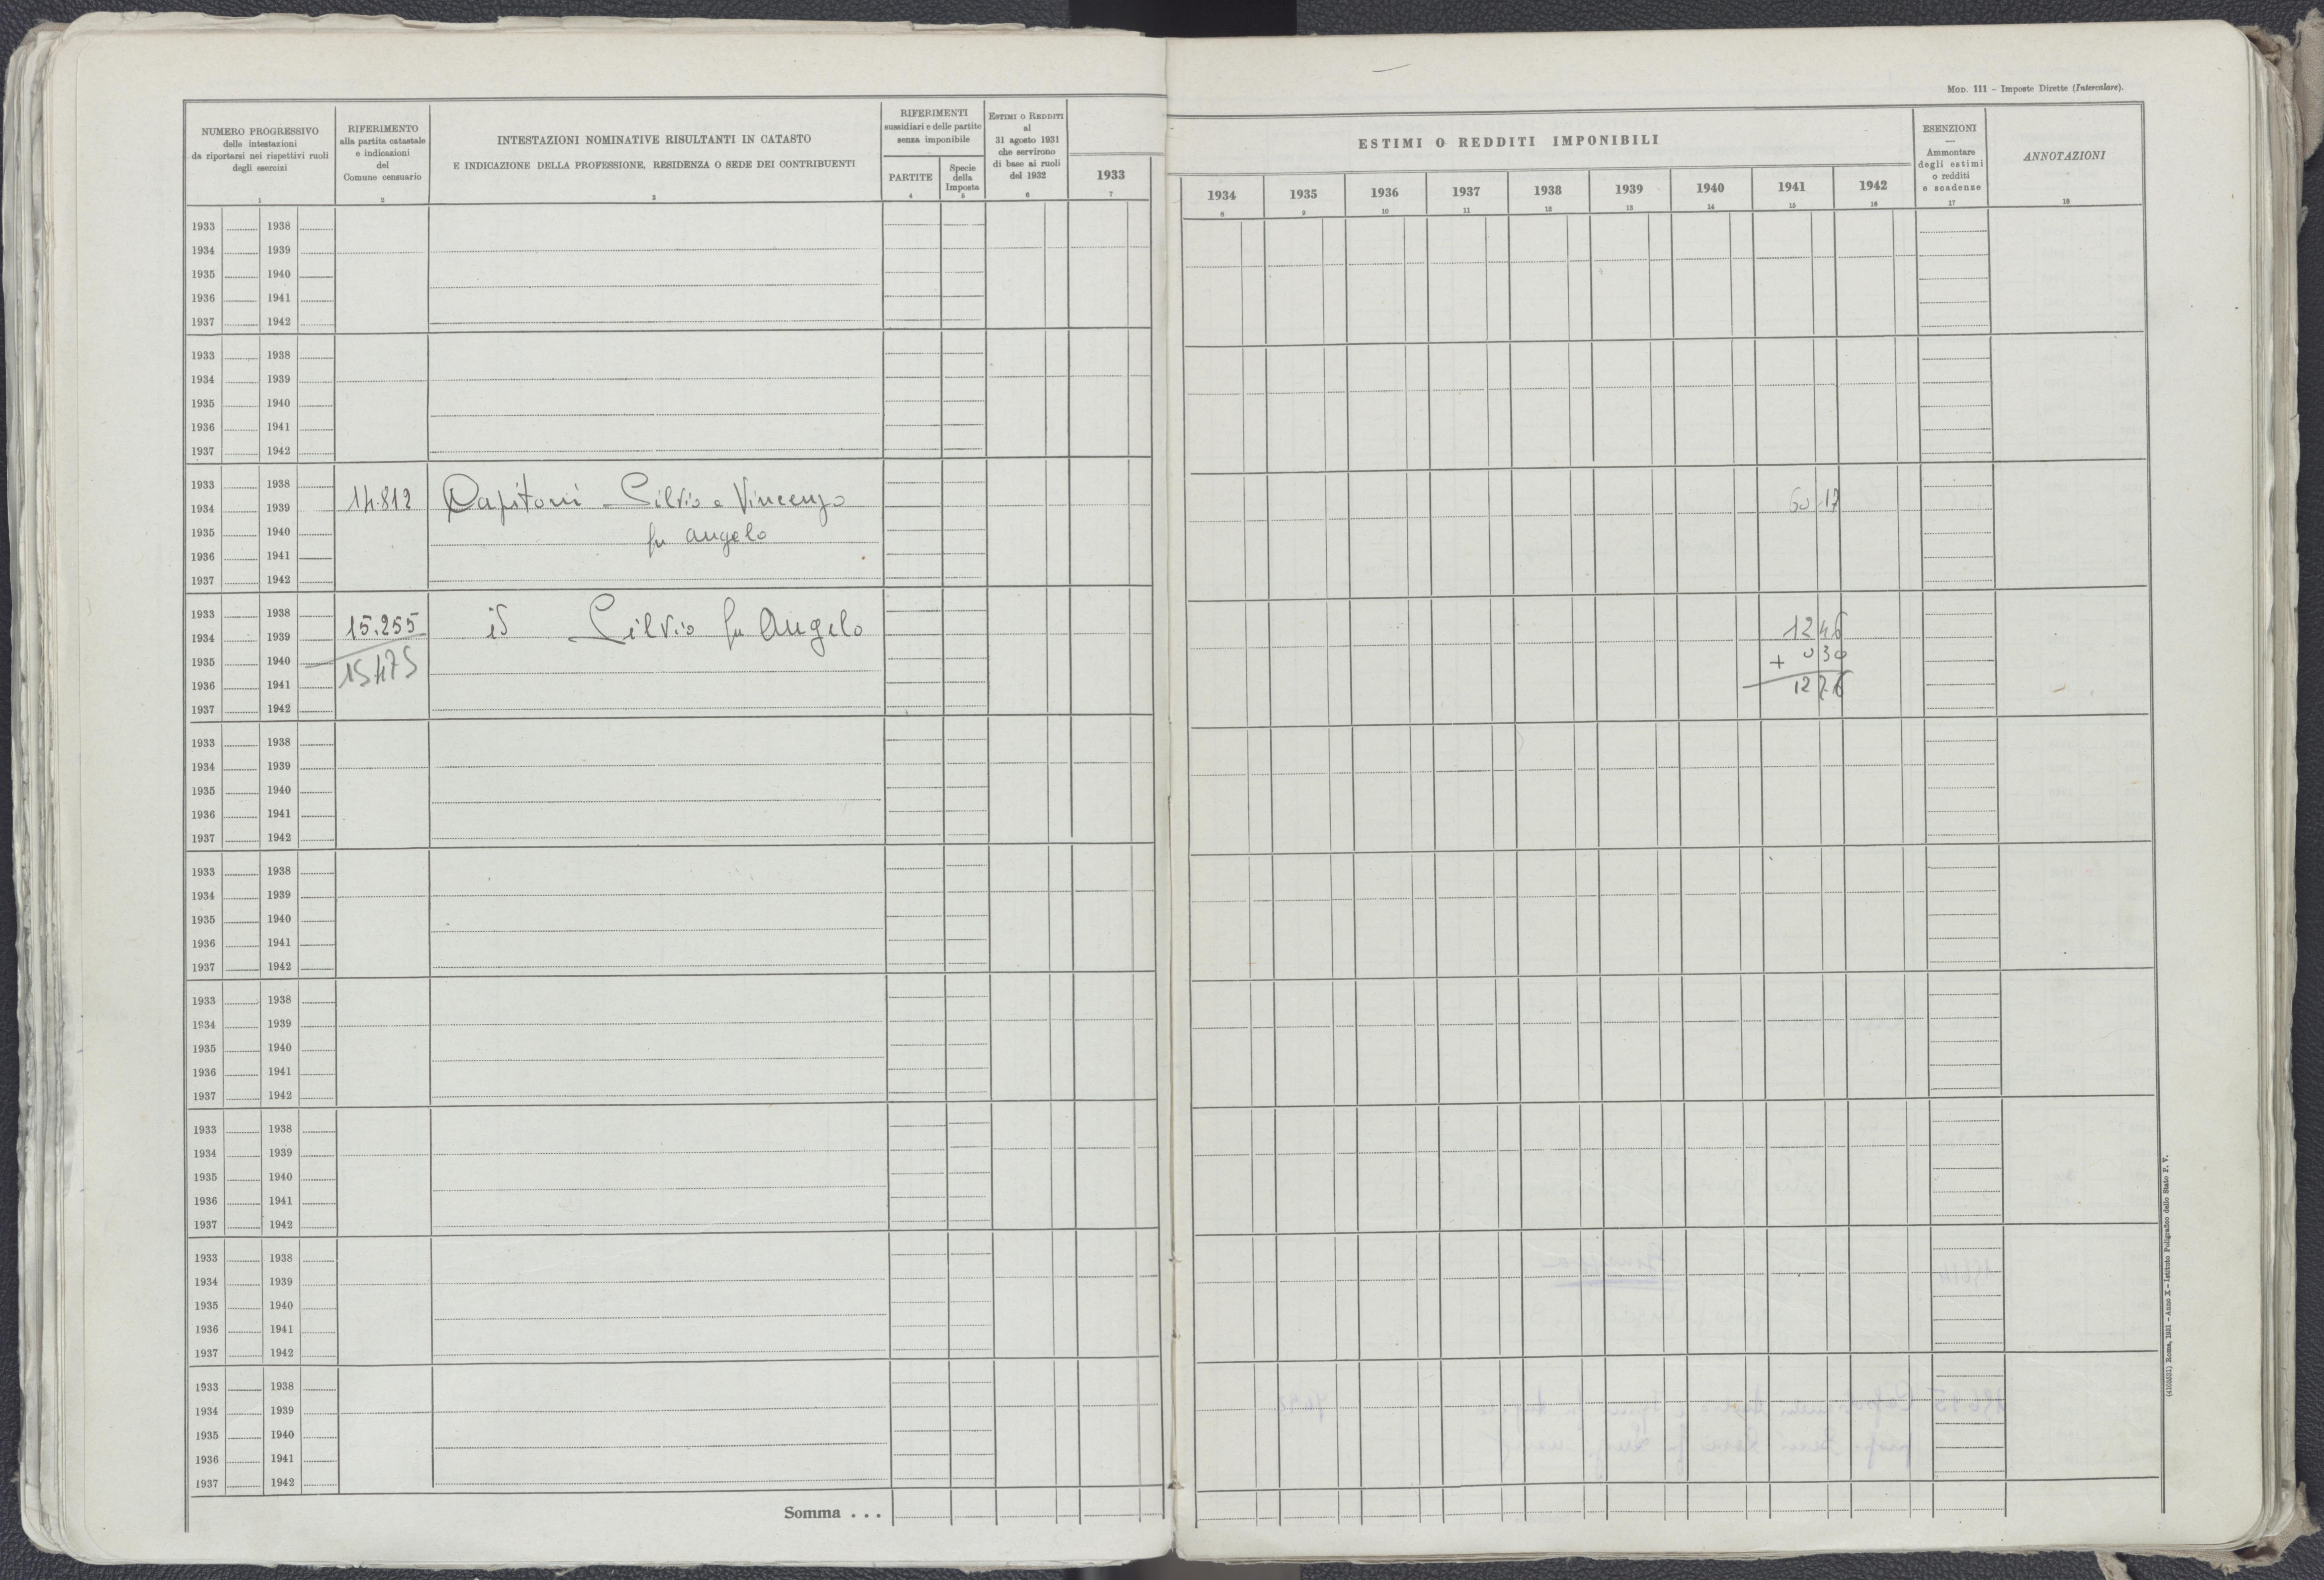 MOD. 111 – Imposte Dirette (Intercalare).
NUMERO PROGRESSIVO
delle intestazioni
da riportarsi nei rispettivi ruoli
degli esercizi
1
RIFERIMENTO
alla partita catastale
e indicazioni
del
Comune censuario
2
INTESTAZIONI NOMINATIVE RISULTANTI IN CATASTO
E INDICAZIONE DELLA PROFESSIONE, RESIDENZA O SEDE DEI CONTRIBUENTI
3
RIFERIMENTI
sussidiari e delle partite
senza imponibile
PARTITE
4
Specie
della
Imposta
5
ESTIMI O REDDITI
al
31 agosto 1931
che servirono
di base ai ruoli
del 1932
6
1933
7
ESTIMI O REDDITI IMPONIBILI
1934 1935 1936 1937 1938 1939 1940 1941 1942
8 9 10 11 12 13 14 15 16
ESENZIONI
—
Ammontare
degli estimi
o redditi
e scadenze
17
ANNOTAZIONI
18
1933 1938
1934 1939
1935 1940
1936 1941
1937 1942
1933 1938
1934 1939
1935 1940
1936 1941
1937 1942
1933 1938
1934 1939 14.812 Capitoni Silvio e Vincenzo 60 17
1935 1940 fu Angelo
1936 1941
1937 1942
1933 1938
1934 1939 15.255 id Silvio fu Angelo 12 46
1935 1940 15475 + 0 30
1936 1941 12 76
1937 1942
1933 1938
1934 1939
1935 1940
1936 1941
1937 1942
1933 1938
1934 1939
1935 1940
1936 1941
1937 1942
1933 1938
1934 1939
1935 1940
1936 1941
1937 1942
1933 1938
1934 1939
1935 1940
1936 1941
1937 1942
1933 1938
1934 1939
1935 1940
1936 1941
1937 1942
1933 1938
1934 1939
1935 1940
1936 1941
1937 1942
Somma . . .
Roma, 1931 – Anno X – Istituto Poligrafico dello Stato P. V.